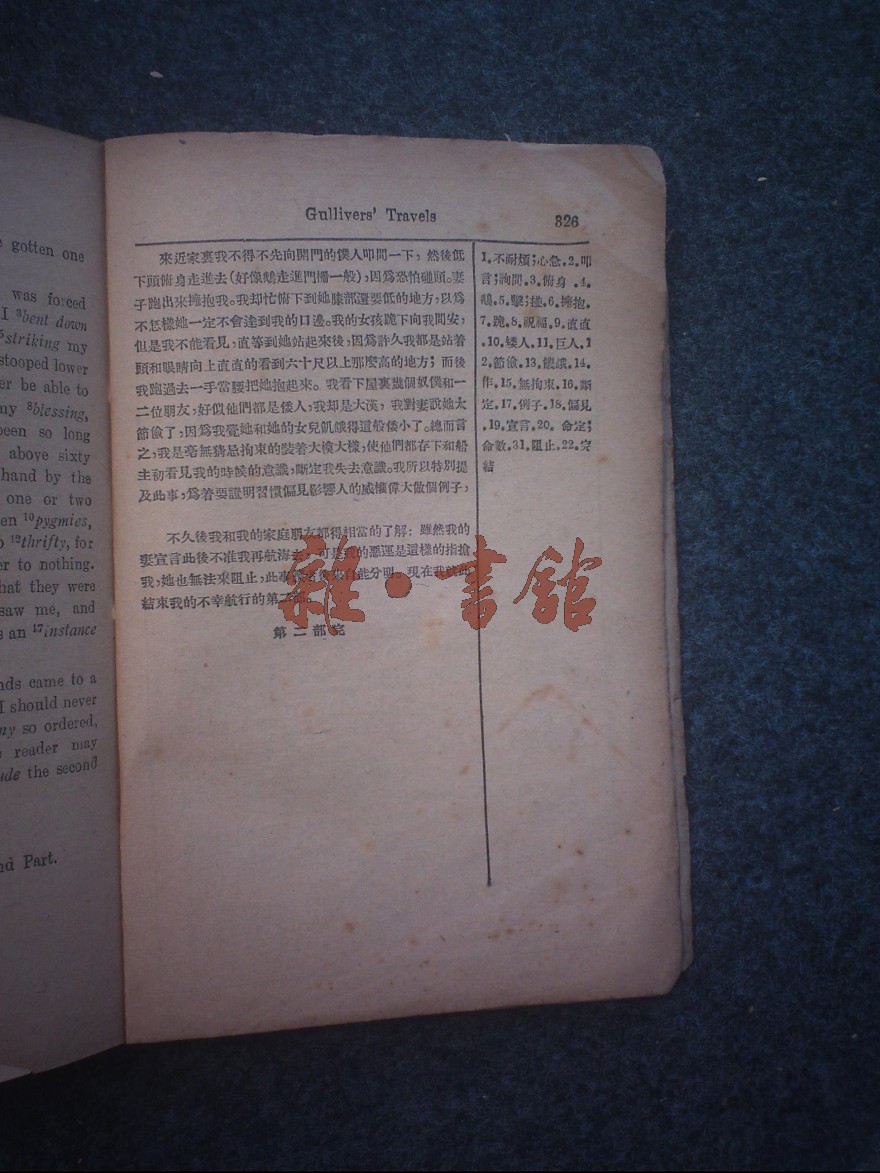 gotten one
was forced
I ³bent down
⁵striking my
stooped lower
er be able to
my ⁸blessing,
been so long
above sixty
hand by the
one or two
en ¹⁰pygmies,
¹²thrifty, for
er to nothing.
hat they were
saw me, and
s an ¹⁷instance
nds came to a
I should never
ny so ordered,
reader may
ude the second
nd Part.
Gullivers' Travels
326
來近家裏我不得不先向開門的僕人叩問一下，然後低
下頭俯身走進去(好像鵝走進門檻一般)，因爲恐怕碰頭。妻
子跑出來擁抱我。我却忙俯下到她膝部還要低的地方，以爲
不怎樣她一定不會達到我的口邊。我的女孩跪下向我問安，
但是我不能看見，直等到她站起來後，因爲許久我都是站着
頭和眼睛向上直直的看到六十尺以上那麼高的地方；而後
我跑過去一手當腰把她抱起來。我看下屋裏幾個奴僕和一
二位朋友，好似他們都是倭人，我却是大漢，我對妻說她太
節儉了，因爲我覺她和她的女兒飢餓得這般倭小了。總而言
之，我是毫無猜忌拘束的裝着大模大樣，使他們都存下和船
主初看見我的時候的意識，斷定我失去意識。我所以特別提
及此事，爲着要證明習慣偏見影響人的威權偉大做個例子，
不久後我和我的家庭朋友都得相當的了解：雖然我的
妻宣言此後不准我再航海去，可是我的惡運是這樣的指搶
我，她也無法來阻止，此事讀者後來自能分明。現在我就此
結束我的不幸航行的第二部。
第二部完
1.不耐煩；心急.2.叩
言；詢問.3.俯身.4.
鵝.5.擊；撞.6.擁抱.
7.跪.8.祝福.9.直直
.10.矮人.11.巨人.1
2.節儉.13.饑餓.14.
作.15.無拘束.16.斷
定.17.例子.18.偏見
.19.宣言.20.命定；
命數.31.阻止.22.完
結
雜·書館